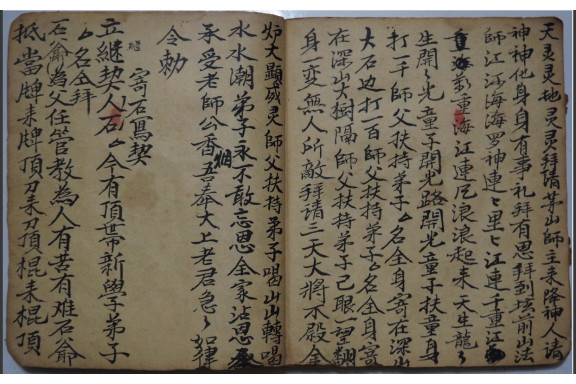 天灵灵地灵灵拜请茅山師主来降神人請
神神他身身有事礼拜有思拜到坛前山法
師江江海海罗神連〻里〻江連千重江
重海蓋重海江連厄浪浪起来天生龍〻
生開〻光童子開光路開光童子扶童身
打一千師父扶持弟子厶名全身寄在深山
大石边打一百師父扶持弟子厶名全身寄
在深山大樹隔師父扶持弟子己眼一望翻
身一变無人所敵拜請三天大將不殿金
炉大顯威灵師父扶持弟子喝山山轉喝
水水潮弟子永不敢忘恩全家沾恩
承受老師公香烟吾奉大上老君急〻如律
令勅
寄石爲契
立継契人石厶今有頂帶新學弟子
厶名全拜
石爺為父任管教為人有苦有难石爺
抵當牌来牌頂刀来刀頂棍来棍頂